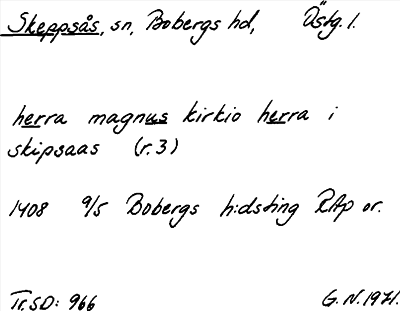 Skeppsås, sn, Bobergs hd, Östg. l.
herra magnus kirkio herra i
skipsaas (r. 3)
1408 9/5 Bobergs h:dsting RAp or.
Tr. SD: 966 G. N. 1971.